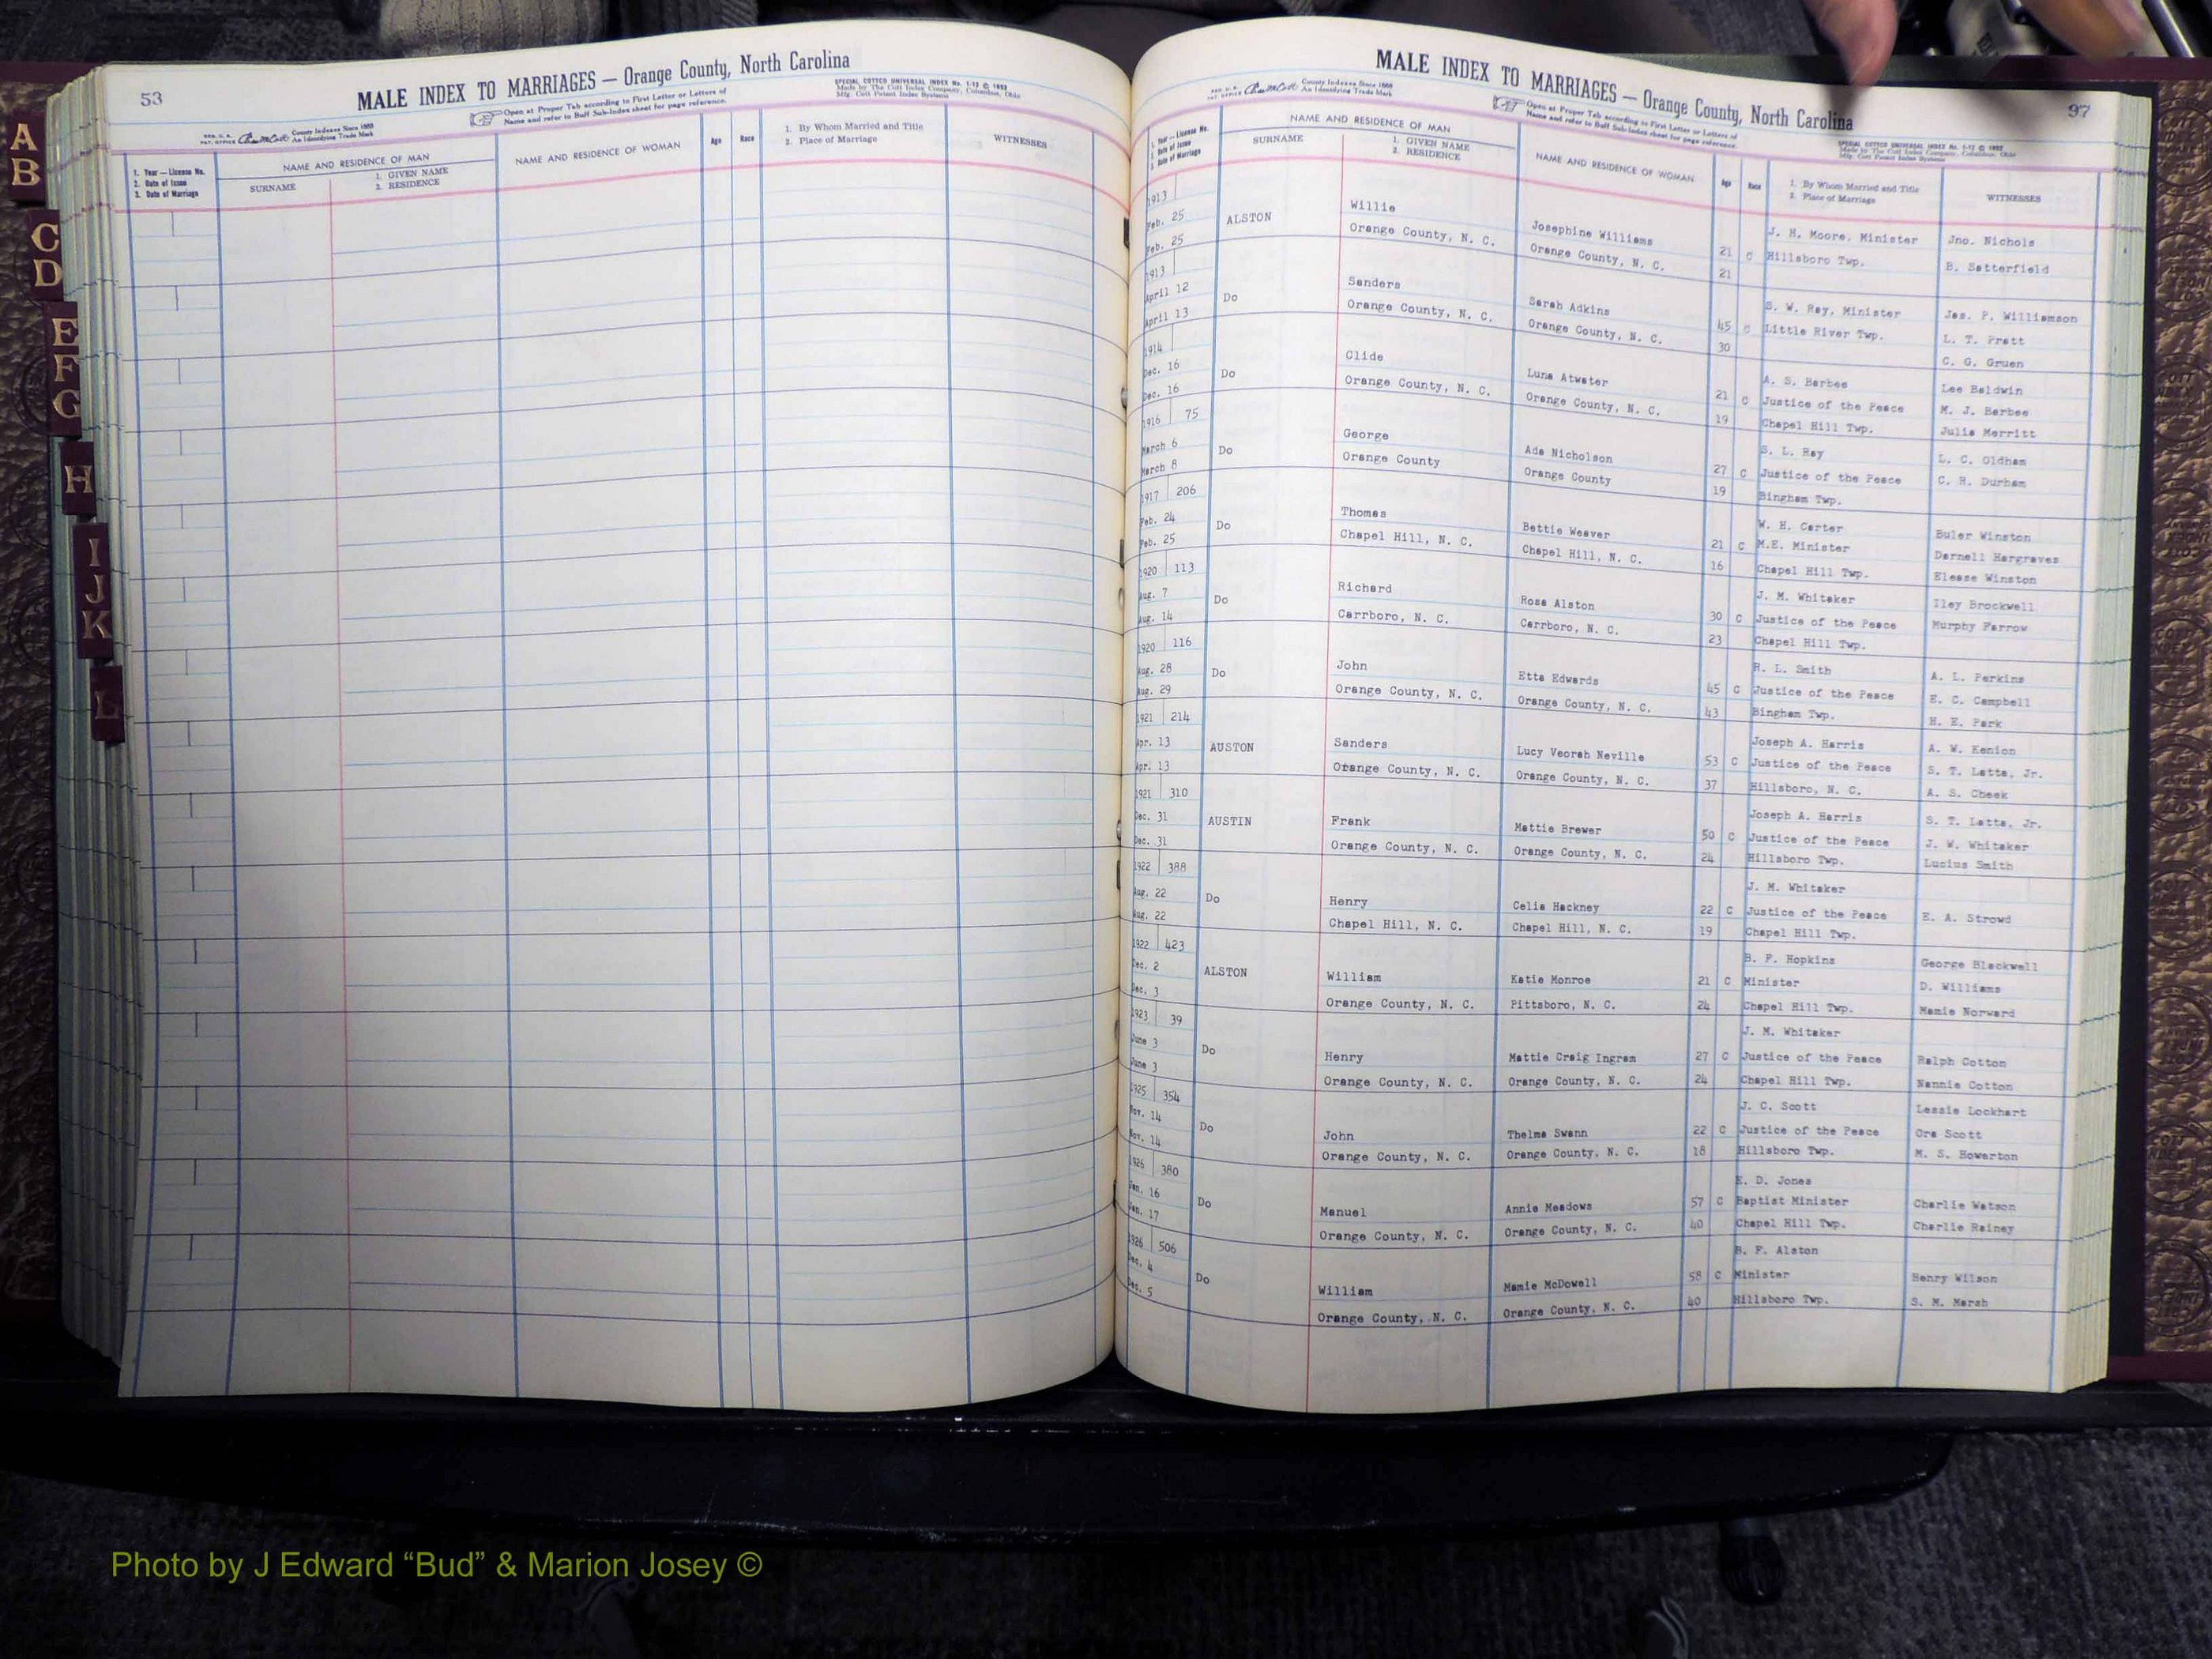 53
MALE INDEX TO MARRIAGES — Orange County, North Carolina
SPECIAL COTTCO UNIVERSAL INDEX No. 1-12 ©
Made by The Cott Index Company, Columbus, Ohio
Mfg. Cott Patent Index Systems
Open at Proper Tab according to First Letter or Letters of
Name and refer to Buff Sub-Index sheet for page reference.
County Indexes Since 1888
An Identifying Trade Mark
1. Year — License No.
2. Date of Issue
3. Date of Marriage
NAME AND RESIDENCE OF MAN
SURNAME
1. GIVEN NAME
2. RESIDENCE
NAME AND RESIDENCE OF WOMAN
Age
Race
1. By Whom Married and Title
2. Place of Marriage
WITNESSES
A
B
C
D
E
F
G
H
I
J
K
L
97
MALE INDEX TO MARRIAGES — Orange County, North Carolina
County Indexes Since 1888
An Identifying Trade Mark
Open at Proper Tab according to First Letter or Letters of
Name and refer to Buff Sub-Index sheet for page reference.
SPECIAL COTTCO UNIVERSAL INDEX No. 1-12 ©
Made by The Cott Index Company, Columbus, Ohio
Mfg. Cott Patent Index Systems
1. Year — License No.
2. Date of Issue
3. Date of Marriage
NAME AND RESIDENCE OF MAN
SURNAME
1. GIVEN NAME
2. RESIDENCE
NAME AND RESIDENCE OF WOMAN
Age
Race
1. By Whom Married and Title
2. Place of Marriage
WITNESSES
1913
Feb. 25 ALSTON Willie Josephine Williams 21 C J. H. Moore, Minister Jno. Nichols
Feb. 25 Orange County, N. C. Orange County, N. C. 21 Hillsboro Twp. B. Satterfield
1913
April 12 Do Sanders Sarah Adkins 45 C S. W. Ray, Minister Jas. P. Williamson
April 13 Orange County, N. C. Orange County, N. C. 30 Little River Twp. L. T. Pratt
C. G. Gruen
1914 A. S. Barbee Lee Baldwin
Dec. 16 Do Clide Luna Atwater 21 C Justice of the Peace M. J. Barbee
Dec. 16 Orange County, N. C. Orange County, N. C. 19 Chapel Hill Twp. Julia Merritt
1916 75 S. L. Ray L. C. Oldham
March 6 Do George Ada Nicholson 27 C Justice of the Peace C. R. Durham
March 8 Orange County Orange County 19 Bingham Twp.
1917 206 W. H. Carter Buler Winston
Feb. 24 Do Thomas Bettie Weaver 21 C M.E. Minister Darnell Hargraves
Feb. 25 Chapel Hill, N. C. Chapel Hill, N. C. 16 Chapel Hill Twp. Elease Winston
1920 113 J. M. Whitaker Iley Brockwell
Aug. 7 Do Richard Rosa Alston 30 C Justice of the Peace Murphy Farrow
Aug. 14 Carrboro, N. C. Carrboro, N. C. 23 Chapel Hill Twp.
1920 116 R. L. Smith A. L. Perkins
Aug. 28 Do John Etta Edwards 45 C Justice of the Peace E. C. Campbell
Aug. 29 Orange County, N. C. Orange County, N. C. 43 Bingham Twp. H. E. Park
1921 214 Joseph A. Harris A. W. Kenion
Apr. 13 AUSTON Sanders Lucy Veorah Neville 53 C Justice of the Peace S. T. Latta, Jr.
Apr. 13 Orange County, N. C. Orange County, N. C. 37 Hillsboro, N. C. A. S. Cheek
1921 310 Joseph A. Harris S. T. Latta, Jr.
Dec. 31 AUSTIN Frank Mattie Brewer 50 C Justice of the Peace J. W. Whitaker
Dec. 31 Orange County, N. C. Orange County, N. C. 24 Hillsboro Twp. Lucius Smith
1922 388 J. M. Whitaker
Aug. 22 Do Henry Celia Hackney 22 C Justice of the Peace E. A. Strowd
Aug. 22 Chapel Hill, N. C. Chapel Hill, N. C. 19 Chapel Hill Twp.
1922 423 B. F. Hopkins George Blackwell
Dec. 2 ALSTON William Katie Monroe 21 C Minister D. Williams
Dec. 3 Orange County, N. C. Pittsboro, N. C. 24 Chapel Hill Twp. Mamie Norward
1923 39 J. M. Whitaker
June 3 Do Henry Mattie Craig Ingram 27 C Justice of the Peace Ralph Cotton
June 3 Orange County, N. C. Orange County, N. C. 24 Chapel Hill Twp. Nannie Cotton
1925 354 J. C. Scott Lessie Lockhart
Nov. 14 Do John Thelma Swann 22 C Justice of the Peace Ora Scott
Nov. 14 Orange County, N. C. Orange County, N. C. 18 Hillsboro Twp. M. S. Howerton
1926 380 E. D. Jones
Jan. 16 Do Manuel Annie Meadows 57 C Baptist Minister Charlie Watson
Jan. 17 Orange County, N. C. Orange County, N. C. 40 Chapel Hill Twp. Charlie Rainey
1926 506 B. F. Alston
Dec. 4 Do William Mamie McDowell 58 C Minister Henry Wilson
Dec. 5 Orange County, N. C. Orange County, N. C. 40 Hillsboro Twp. S. M. Marsh
Photo by J Edward “Bud” & Marion Josey ©